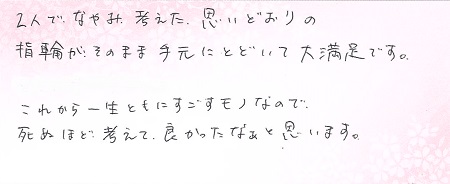 2人で、なやみ、考えた、思いどおりの
指輪が、そのまま手元にとどいて大満足です。
これから一生ともにすごすモノなので、
死ぬほど、考えて、良かったなぁと思います。